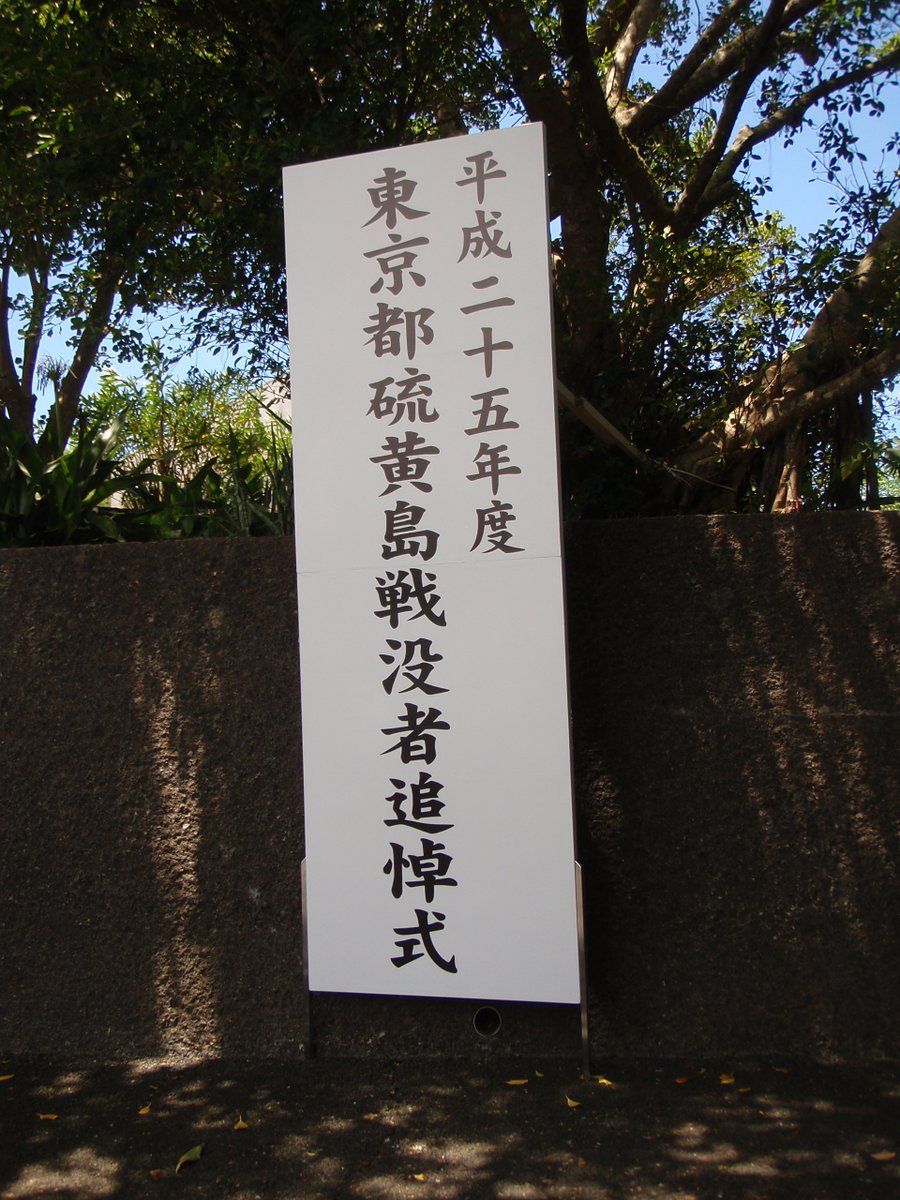 平成二十五年度
東京都硫黄島戦没者追悼式